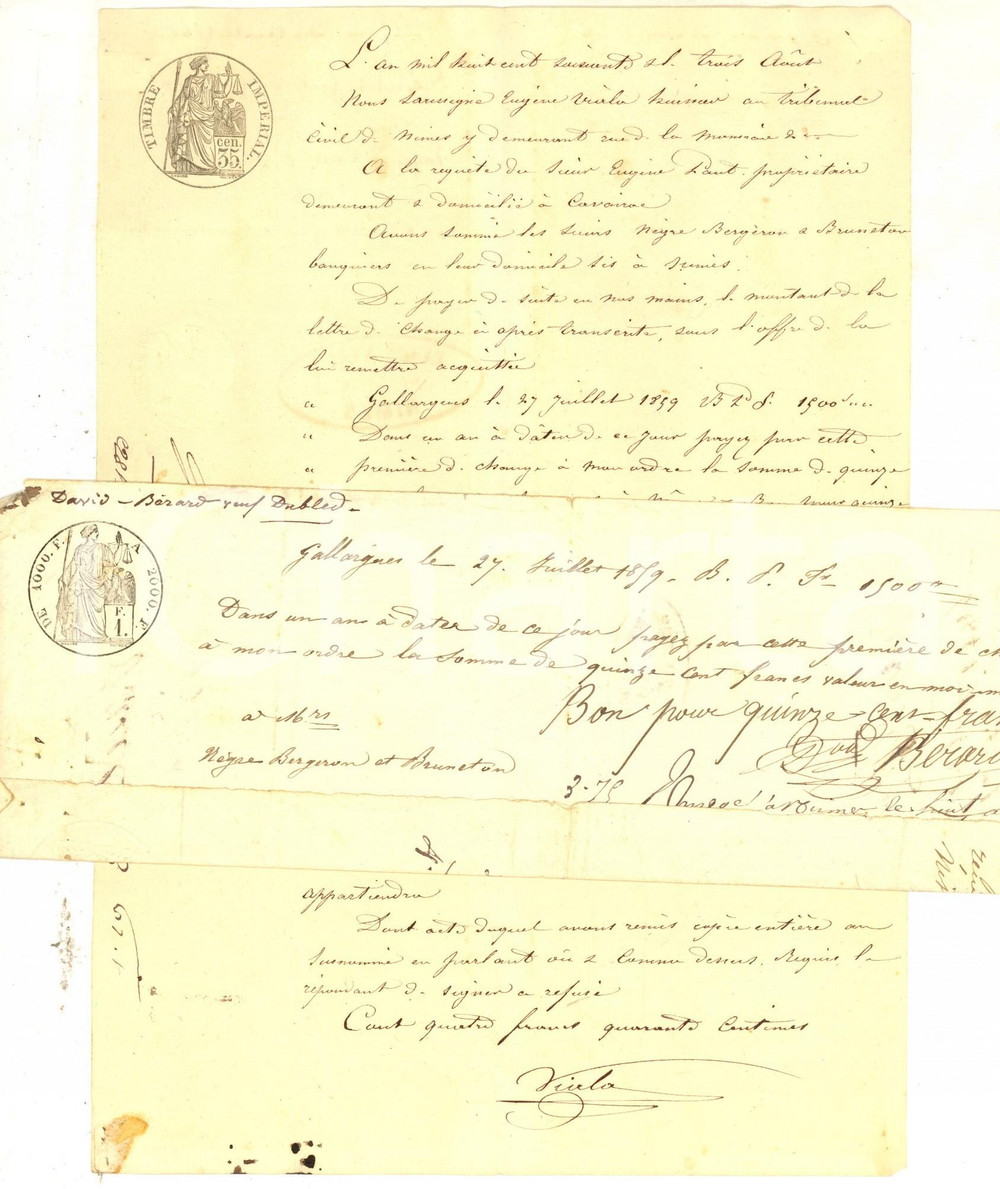 TIMBRE IMPÉRIAL.
cen. 35.
L'an mil huit cent soixante et le trois Août
Nous soussigné Eugène Viala huissier au tribunal
Civil de Nimes y demeurant rue de la
A la requête du Sieur Eugène Paut propriétaire
demeurant & domicilié à Caveirac
Avons sommé les sieurs Nègre Bergeron & Bruneton
banquiers en leur domicile sis à Nimes.
De payer de suite en nos mains, le montant de la
lettre de change ci après transcrite, sous l'offre de la
lui remettre acquittée
" Gallargues le 27 Juillet 1859 B. P. f. 1500
" Dans un an à dater de ce jour payez par cette
" première de change à mon ordre la somme de quinze
David - Bérard veuf Dubled -
DE 1000. F. A 2000. F.
F. 1.
Gallargues le 27. Juillet 1859 - B. P. Fr 1500
Dans un an à dater de ce jour payez par cette première de ch
à mon ordre la somme de quinze cent francs valeur en moi
Bon pour quinze cent fran
à Mrs
Bérard
Nègre Bergeron et Bruneton
3-75 à Nimes le huit a
appartiendra
Dont acte duquel avons remis copie entière au
susnommé en parlant où & comme dessus. Requis le
répondant de signer a refusé
Cout quatre francs quarante centimes
Viala